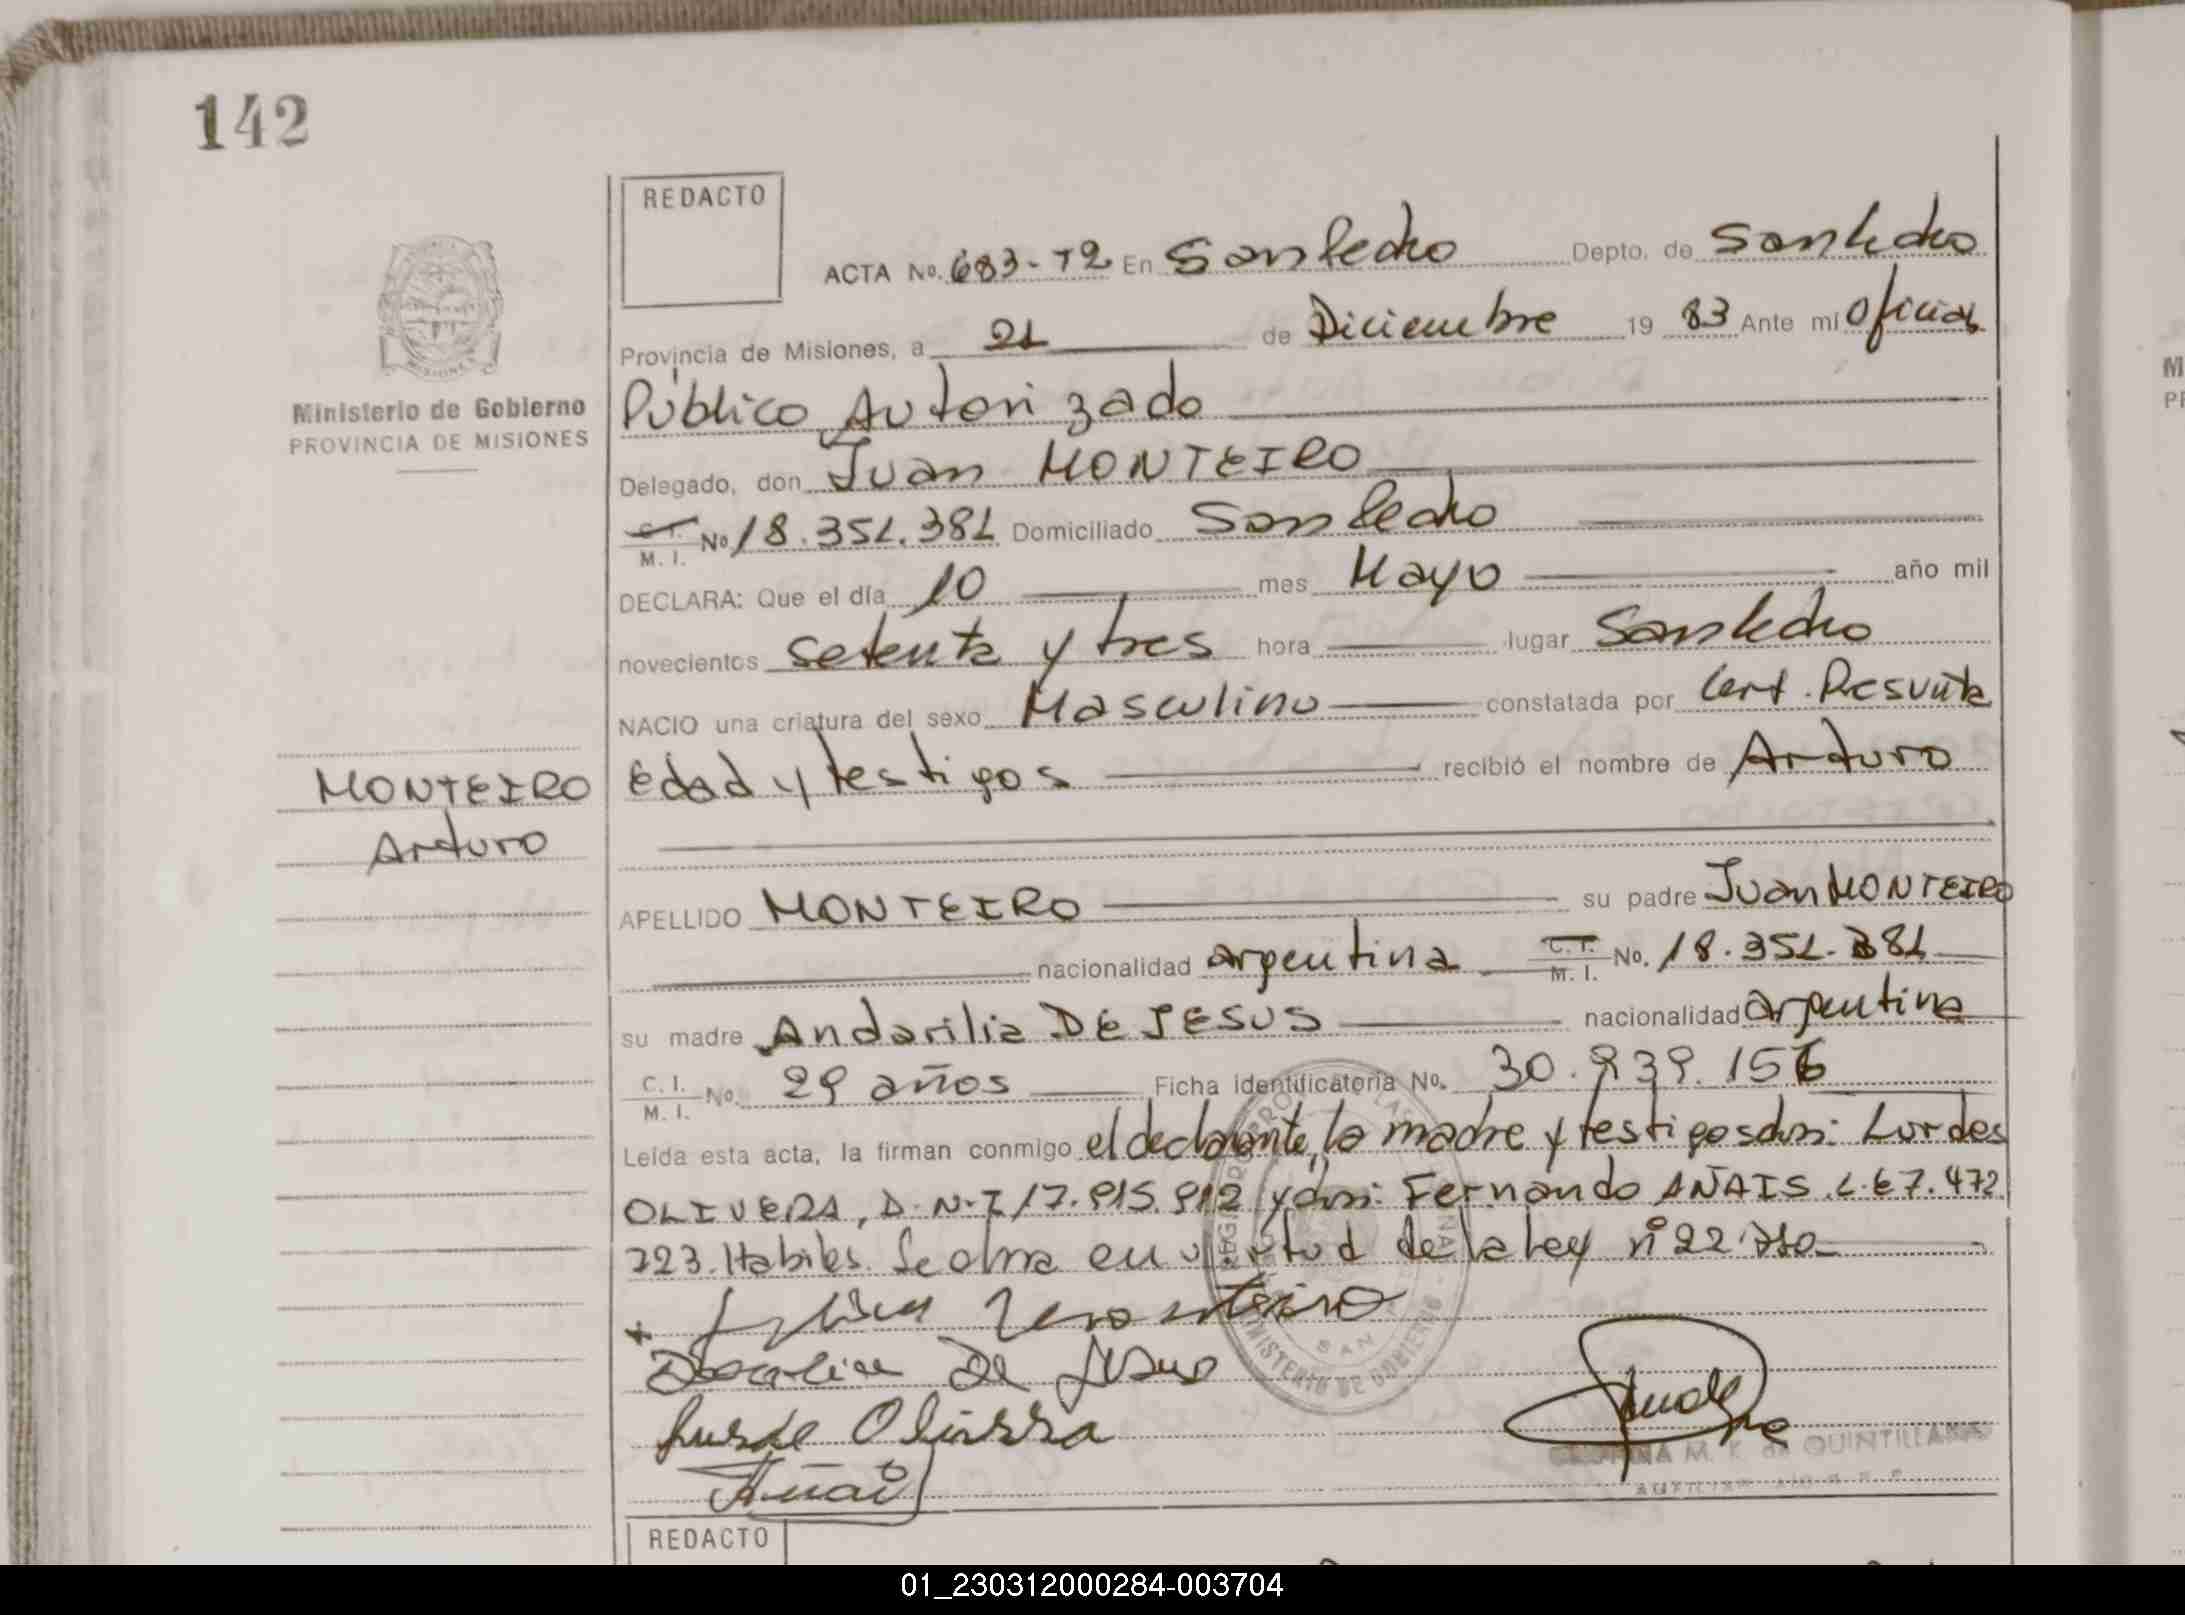 142
REDACTO
ACTA No. 683-T2 En San Pedro Depto. de San Pedro
Provincia de Misiones, a 21 de Diciembre 19 83 Ante mí Oficial
Público Autorizado
Ministerio de Gobierno
PROVINCIA DE MISIONES
Delegado, don Juan MONTEIRO
C. I. M. I. No 18.351.381 Domiciliado San Pedro
DECLARA: Que el día 10 mes Mayo año mil
novecientos setenta y tres hora lugar San Pedro
NACIO una criatura del sexo Masculino constatada por Cert. Presunta
edad y testigos recibió el nombre de Arturo
MONTEIRO
Arturo
APELLIDO MONTEIRO su padre Juan MONTEIRO
nacionalidad argentina C. I. M. I. No. 18.351.381
su madre Andarilia DE JESUS nacionalidad argentina
C. I. M. I. No. 29 años Ficha identificatoria No. 30.939.156
Leída esta acta, la firman conmigo el declarante, la madre y testigos don: Lurdes
OLIVERA, D.N.I 17.915.912 y don: Fernando AÑAIS. L.E 7.472
723. Habiles. Se obra en virtud de la ley nº 22
De Jesus
Añais
MINISTERIO DE GOBIERNO
M. K. de QUINTILLAN
REDACTO
01_230312000284-003704